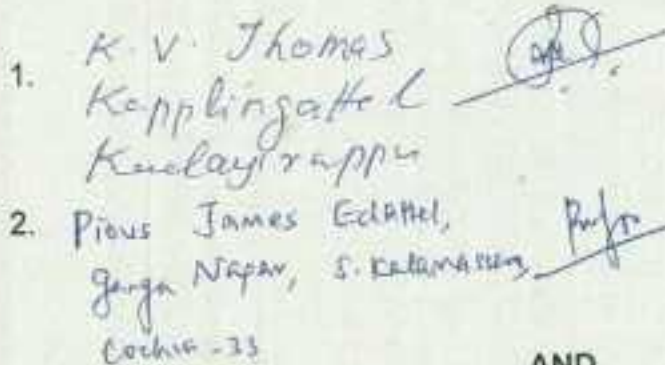 1. K. V. Thomas
Kapplingattel
Kudayirappu
2. Pious James Edattel,
Ganga Nagar, S. Kalamassery,
Cochin - 33
AND